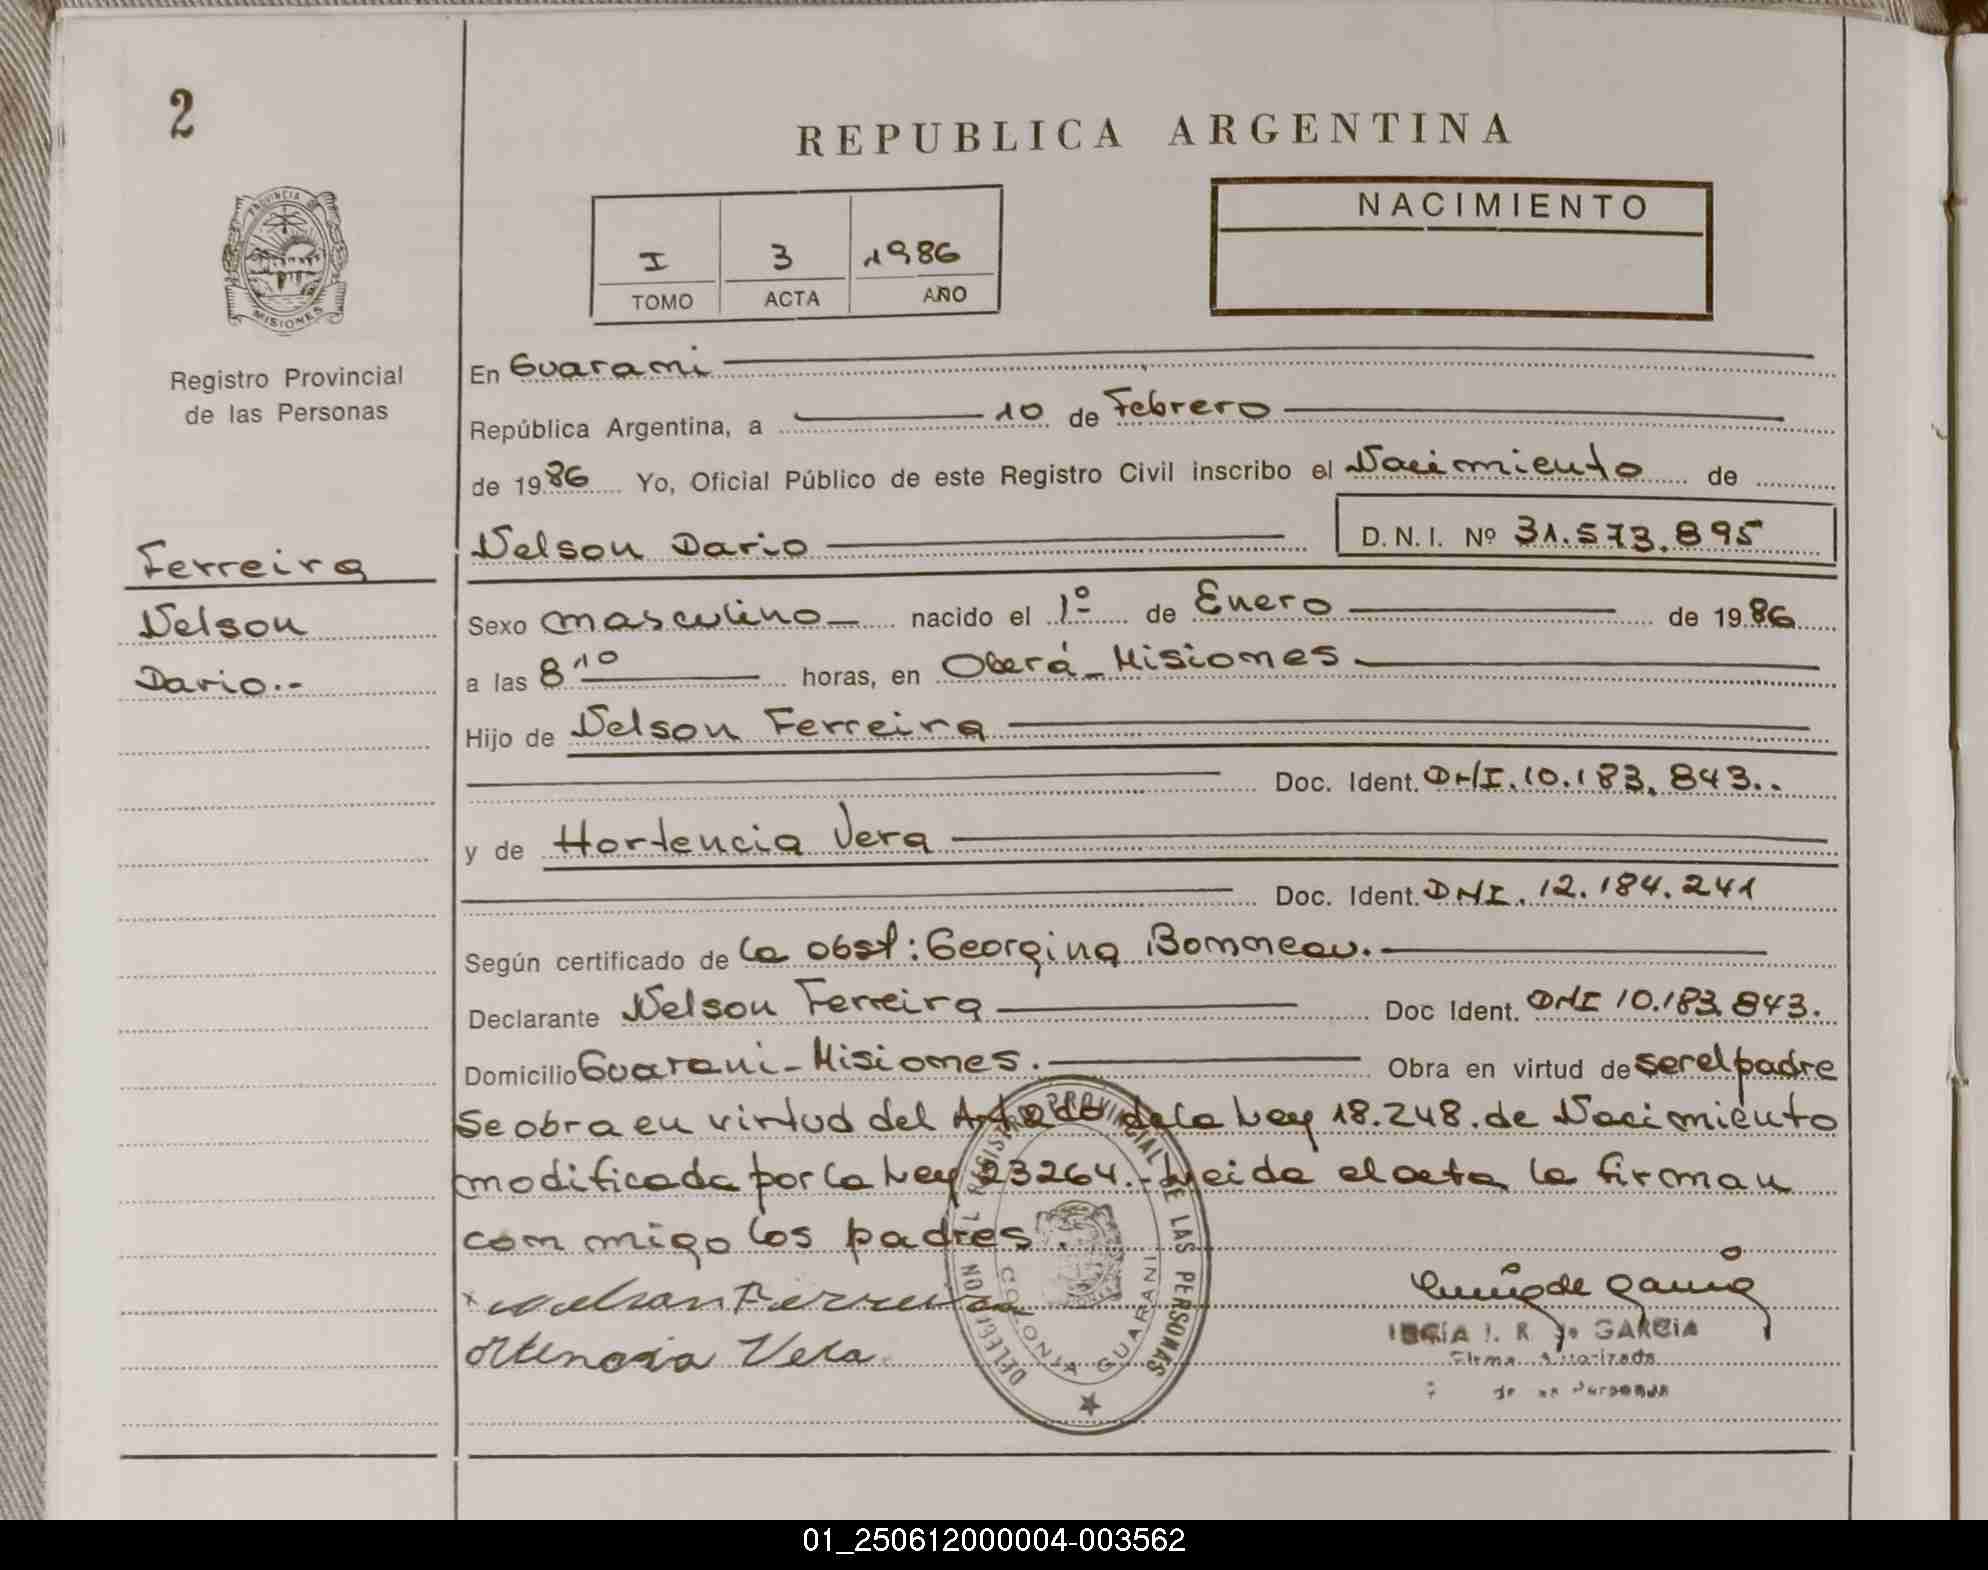 2
REPUBLICA ARGENTINA
PROVINCIA DE
MISIONES
Registro Provincial
de las Personas
I 3 1986
TOMO ACTA AÑO
NACIMIENTO
En Guarani
República Argentina, a 10 de Febrero
de 1986 Yo, Oficial Público de este Registro Civil inscribo el Nacimiento de
Nelson Dario D.N.I. Nº 31.573.895
Ferreira
Nelson
Dario.-
Sexo masculino nacido el 1º de Enero de 1986
a las 8 10 horas, en Oberá - Misiones
Hijo de Nelson Ferreira
Doc. Ident. DNI. 10.183.843..
y de Hortencia Vera
Doc. Ident. DNI. 12.184.241
Según certificado de la obst: Georgina Bonneau.
Declarante Nelson Ferreira Doc Ident. DNI 10.183.843.
Domicilio Guarani - Misiones. Obra en virtud de ser el padre
Se obra en virtud del de la Ley 18.248. de Nacimiento
modificada por la Ley 23264.- Leida el acta la firman
con migo los padres.
x Nelson Ferreira
Ortencia Vera
DELEGACION DEL REGISTRO PROVINCIAL DE LAS PERSONAS
COLONIA GUARANI
de Garcia
I. R. de GARCIA
Firma Autorizada
de las Personas
01_250612000004-003562